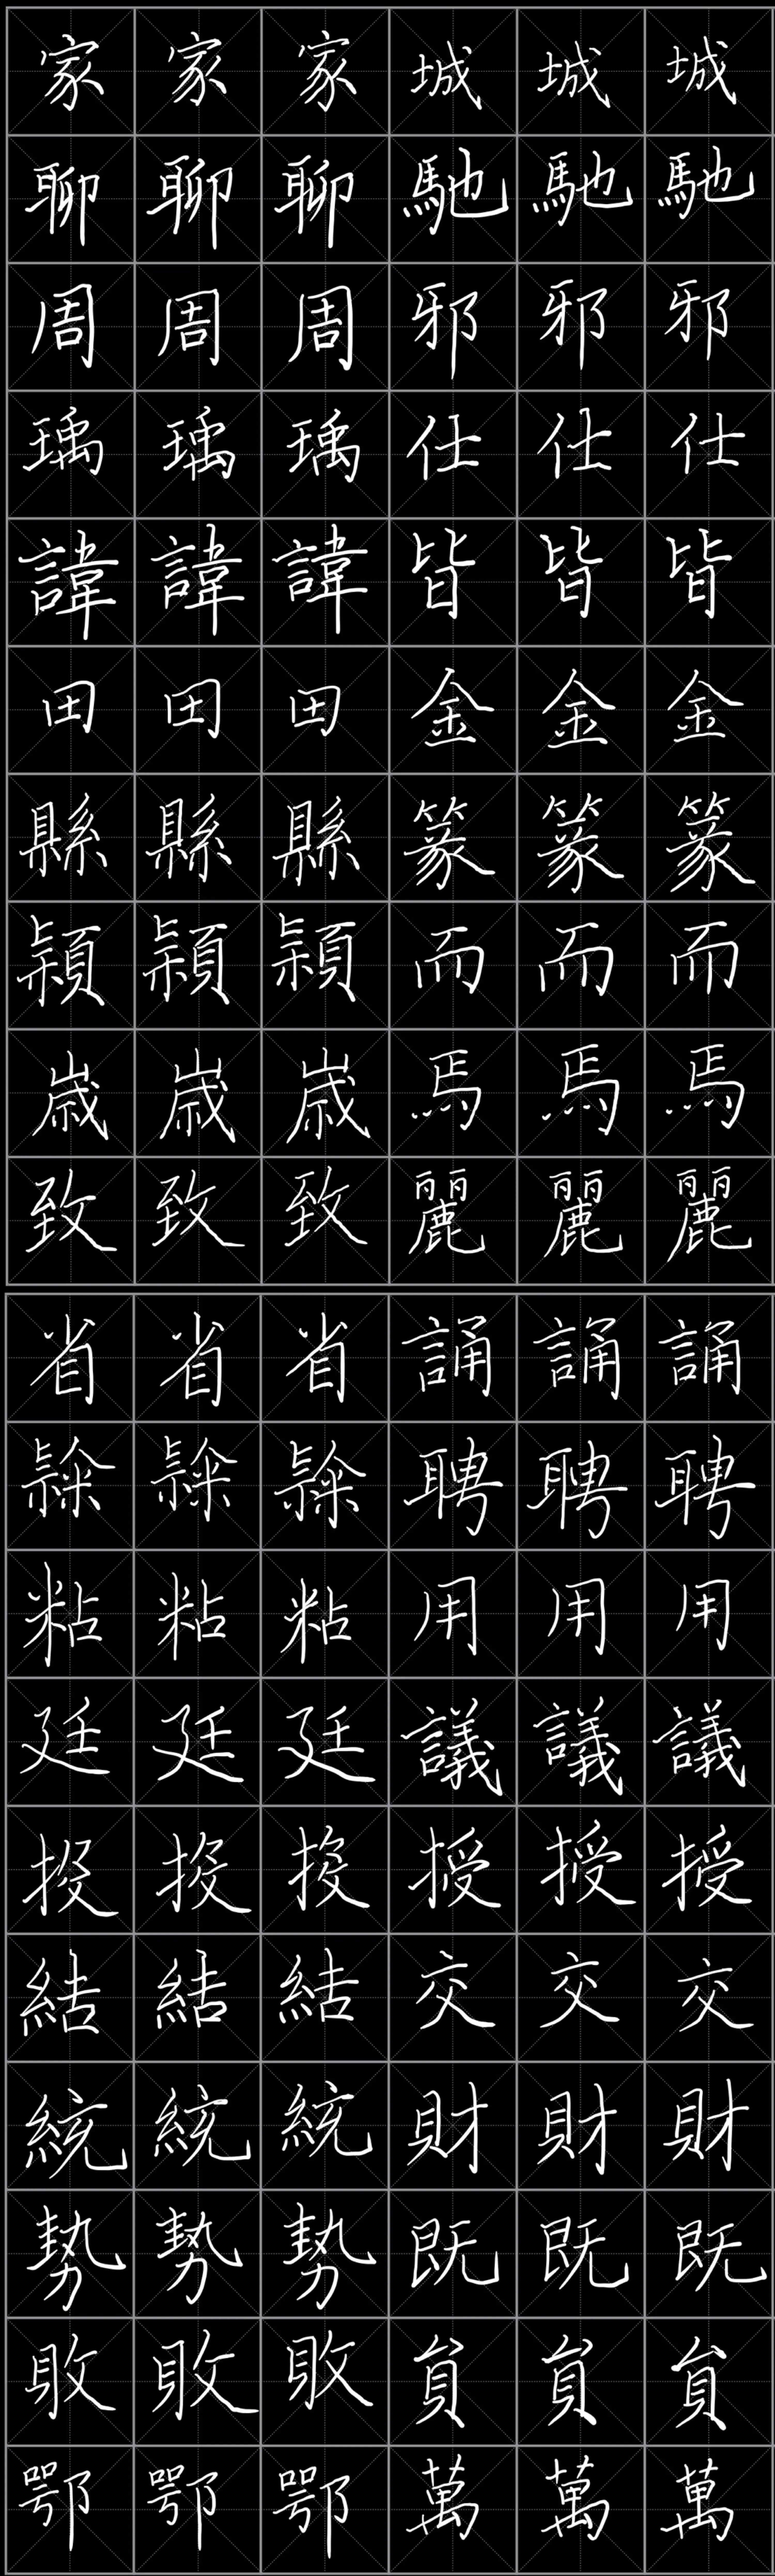 家家家城城城
聊聊聊馳馳馳
周周周邪邪邪
瑀瑀瑀仕仕仕
諱諱諱皆皆皆
田田田金金金
縣縣縣篆篆篆
潁潁潁而而而
歲歲歲焉焉焉
致致致麗麗麗
省省省誦誦誦
聘聘聘
粘粘粘用用用
廷廷廷議議議
授授授
結結結交交交
統統統財財財
勢勢勢既既既
敗敗敗負負負
鄂鄂鄂萬萬萬